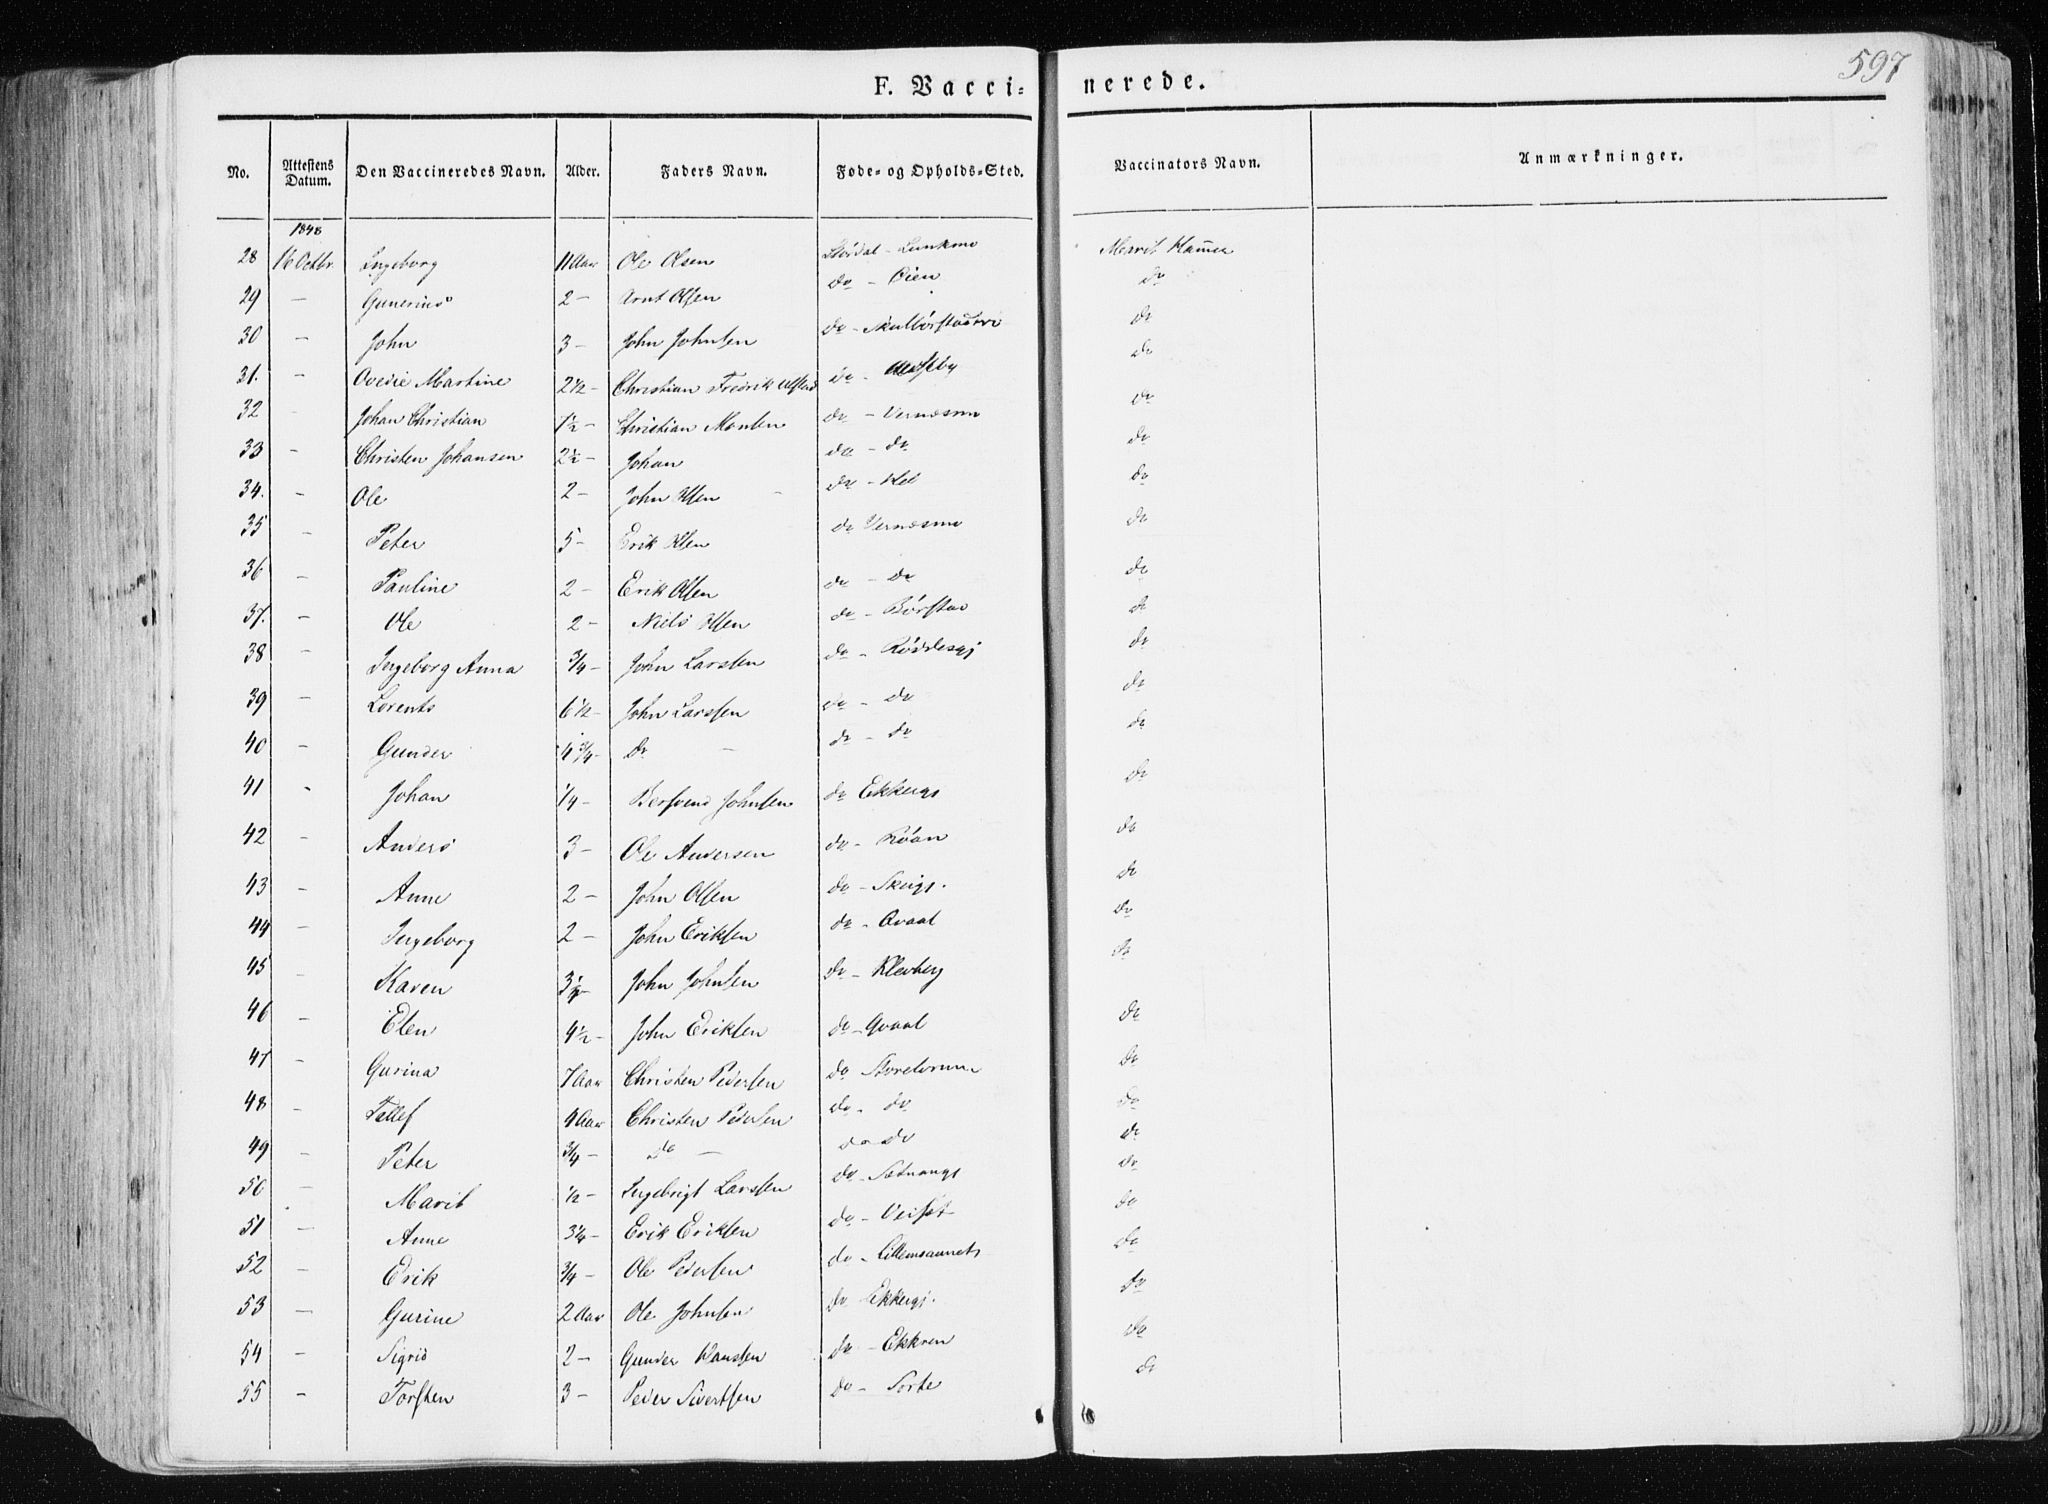 597
F. Vacci- nerede.
No. Attestens Datum. Den Vaccineredes Navn. Alder. Faders Navn. Føde- og Opholds-Sted. Vaccinators Navn. Anmærkninger.
1848
28 16 Octbr. Ingeborg 11 Aar Ole Olsen Størdal - Marit Hammer
29 - Gunerius 2 - Arnt Olsen do - Øien do
30 - John 3 - John Johnsen do - do
31. - Ovedie Martine 2 1/2 - Christian Fredrik do - do
32 - Johan Christian 1 1/2 - Christian do - Vernæsmo do
33 - Christen Johansen 2 1/2 - Johan do - do do
34. - Ole 2 - John Olsen - do - do
35 - Peter 5 - Erik Olsen do Vernæsmo do
36 - Pauline 2 - Erik Olsen do - do do
37. - Ole 2 - Niels Olsen do - Børstad do
38 - Ingeborg Anna 3/4 - John Larssen do - do
39 - Lorents 6 1/2 - John Larssen do - do do
40 - Gunder 4 3/4 - do - do - do do
41 - Johan 1/4 - Bersvend Johnsen do Ekkergs do
42 - Anders 3 - Ole Andersen do - Røan do
43 - Anne 2 - John Olsen do - do
44 - Ingeborg 2 - John Eriksen do - Qvaal do
45 - Karen John Johnsen do - Klevberg do
46 - Elen 4 1/2 - John Eriksen do - Qvaal do
47 - Gurina 7 Aar Christen Pedersen do do
48 - Tollef 4 Aar Christen Pedersen do - do do
49 - Peter 3/4 - do - do - do do
50 - Marit 1/2 - Ingebrigt Larssen do - do
51 - Anne 3 1/4 - Erik Eriksen do - do
52 - Erik 3/4 - Ole Pedersen do - do
53 - Gurine 2 Aar Ole Johnsen do - do
54 - Sigrid 2 - Gunder Hanssen do - Ekkren do
55 - Torsten 3 - Peder Sivertsen do - Sorte do